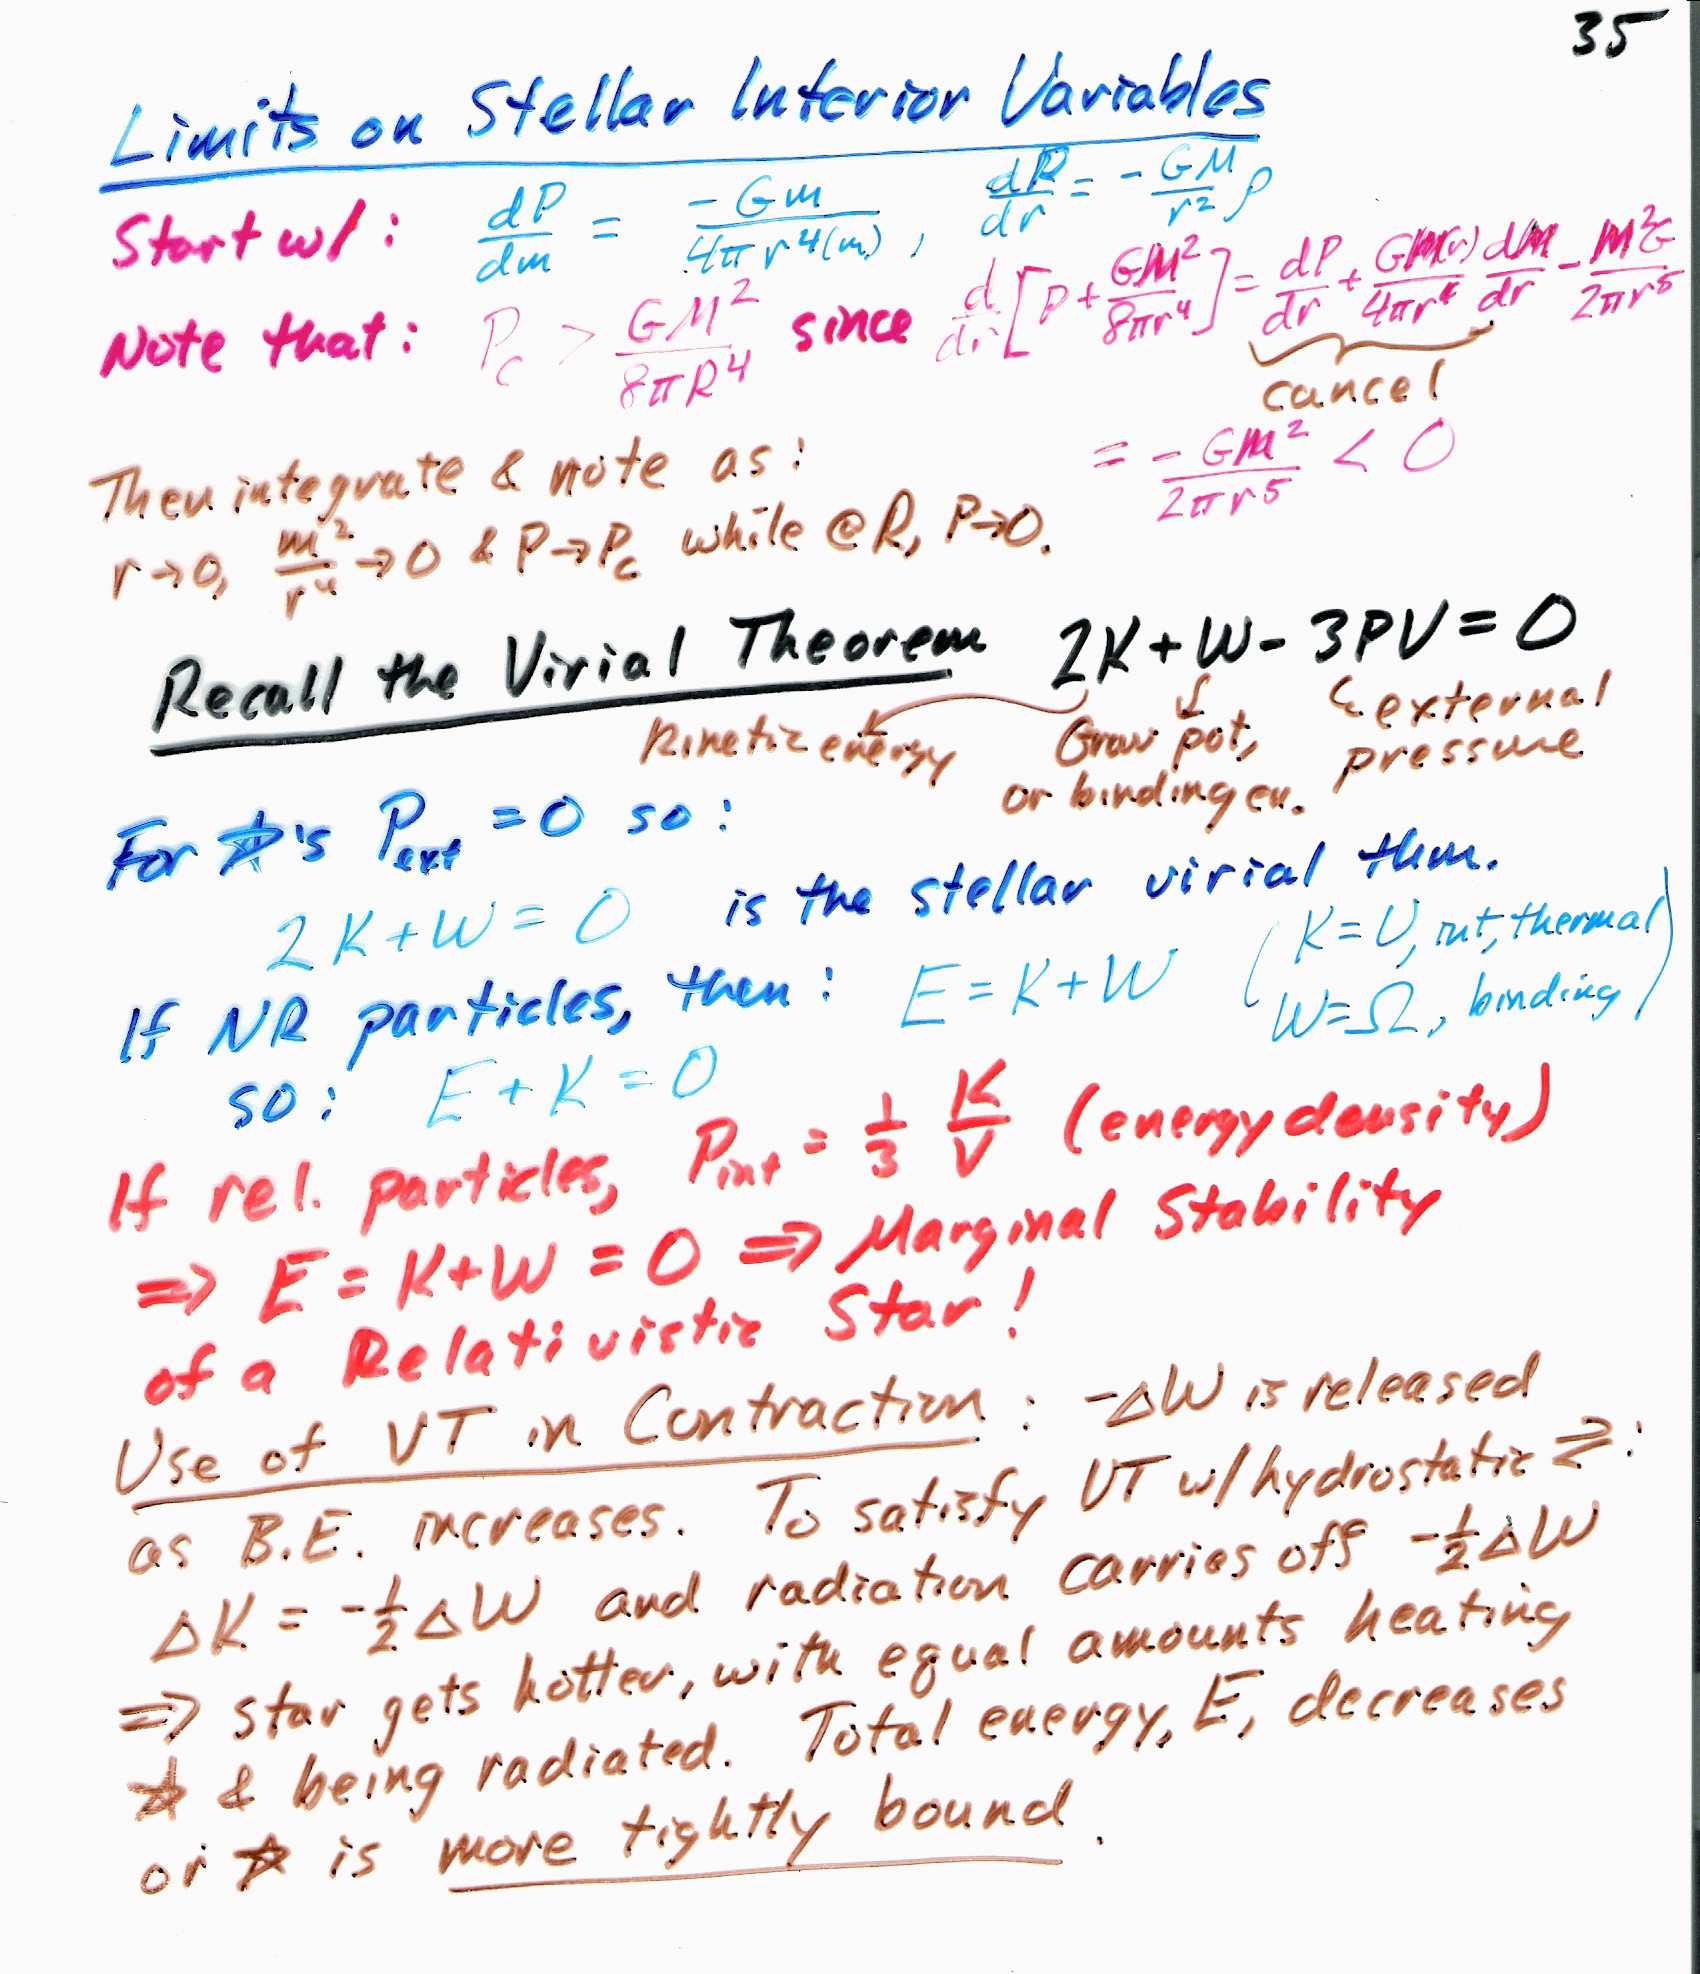 35
Limits on Stellar Interior Variables
Start w/: dP/dm = -Gm/4πr⁴(m), dP/dr = -GM/r² ρ
Note that: P_c > GM²/8πR⁴ since d/dr[P + GM²/8πr⁴] = dP/dr + GM(r)/4πr⁴ dM/dr - M²G/2πr⁵
cancel
= -GM²/2πr⁵ < 0
Then integrate & note as:
r→0, m²/r⁴→0 & P→P_c while @R, P→0.
Recall the Virial Theorem 2K+W-3PV=0
Kinetic energy Grav pot, or binding en. external pressure
For ☆'s P_ext = 0 so:
2K+W=0 is the stellar virial thm.
If NR particles, then: E=K+W (K=U, int, thermal
W=Ω, binding)
so: E+K=0
If rel. particles, P_int = 1/3 K/V (energy density)
⇒ E=K+W=0 ⇒ Marginal Stability
of a Relativistic Star!
Use of VT in Contraction: -ΔW is released
as B.E. increases. To satisfy VT w/hydrostatic ⇄:
ΔK = -½ΔW and radiation carries off -½ΔW
⇒ star gets hotter, with equal amounts heating
☆ & being radiated. Total energy, E, decreases
or ☆ is more tightly bound.